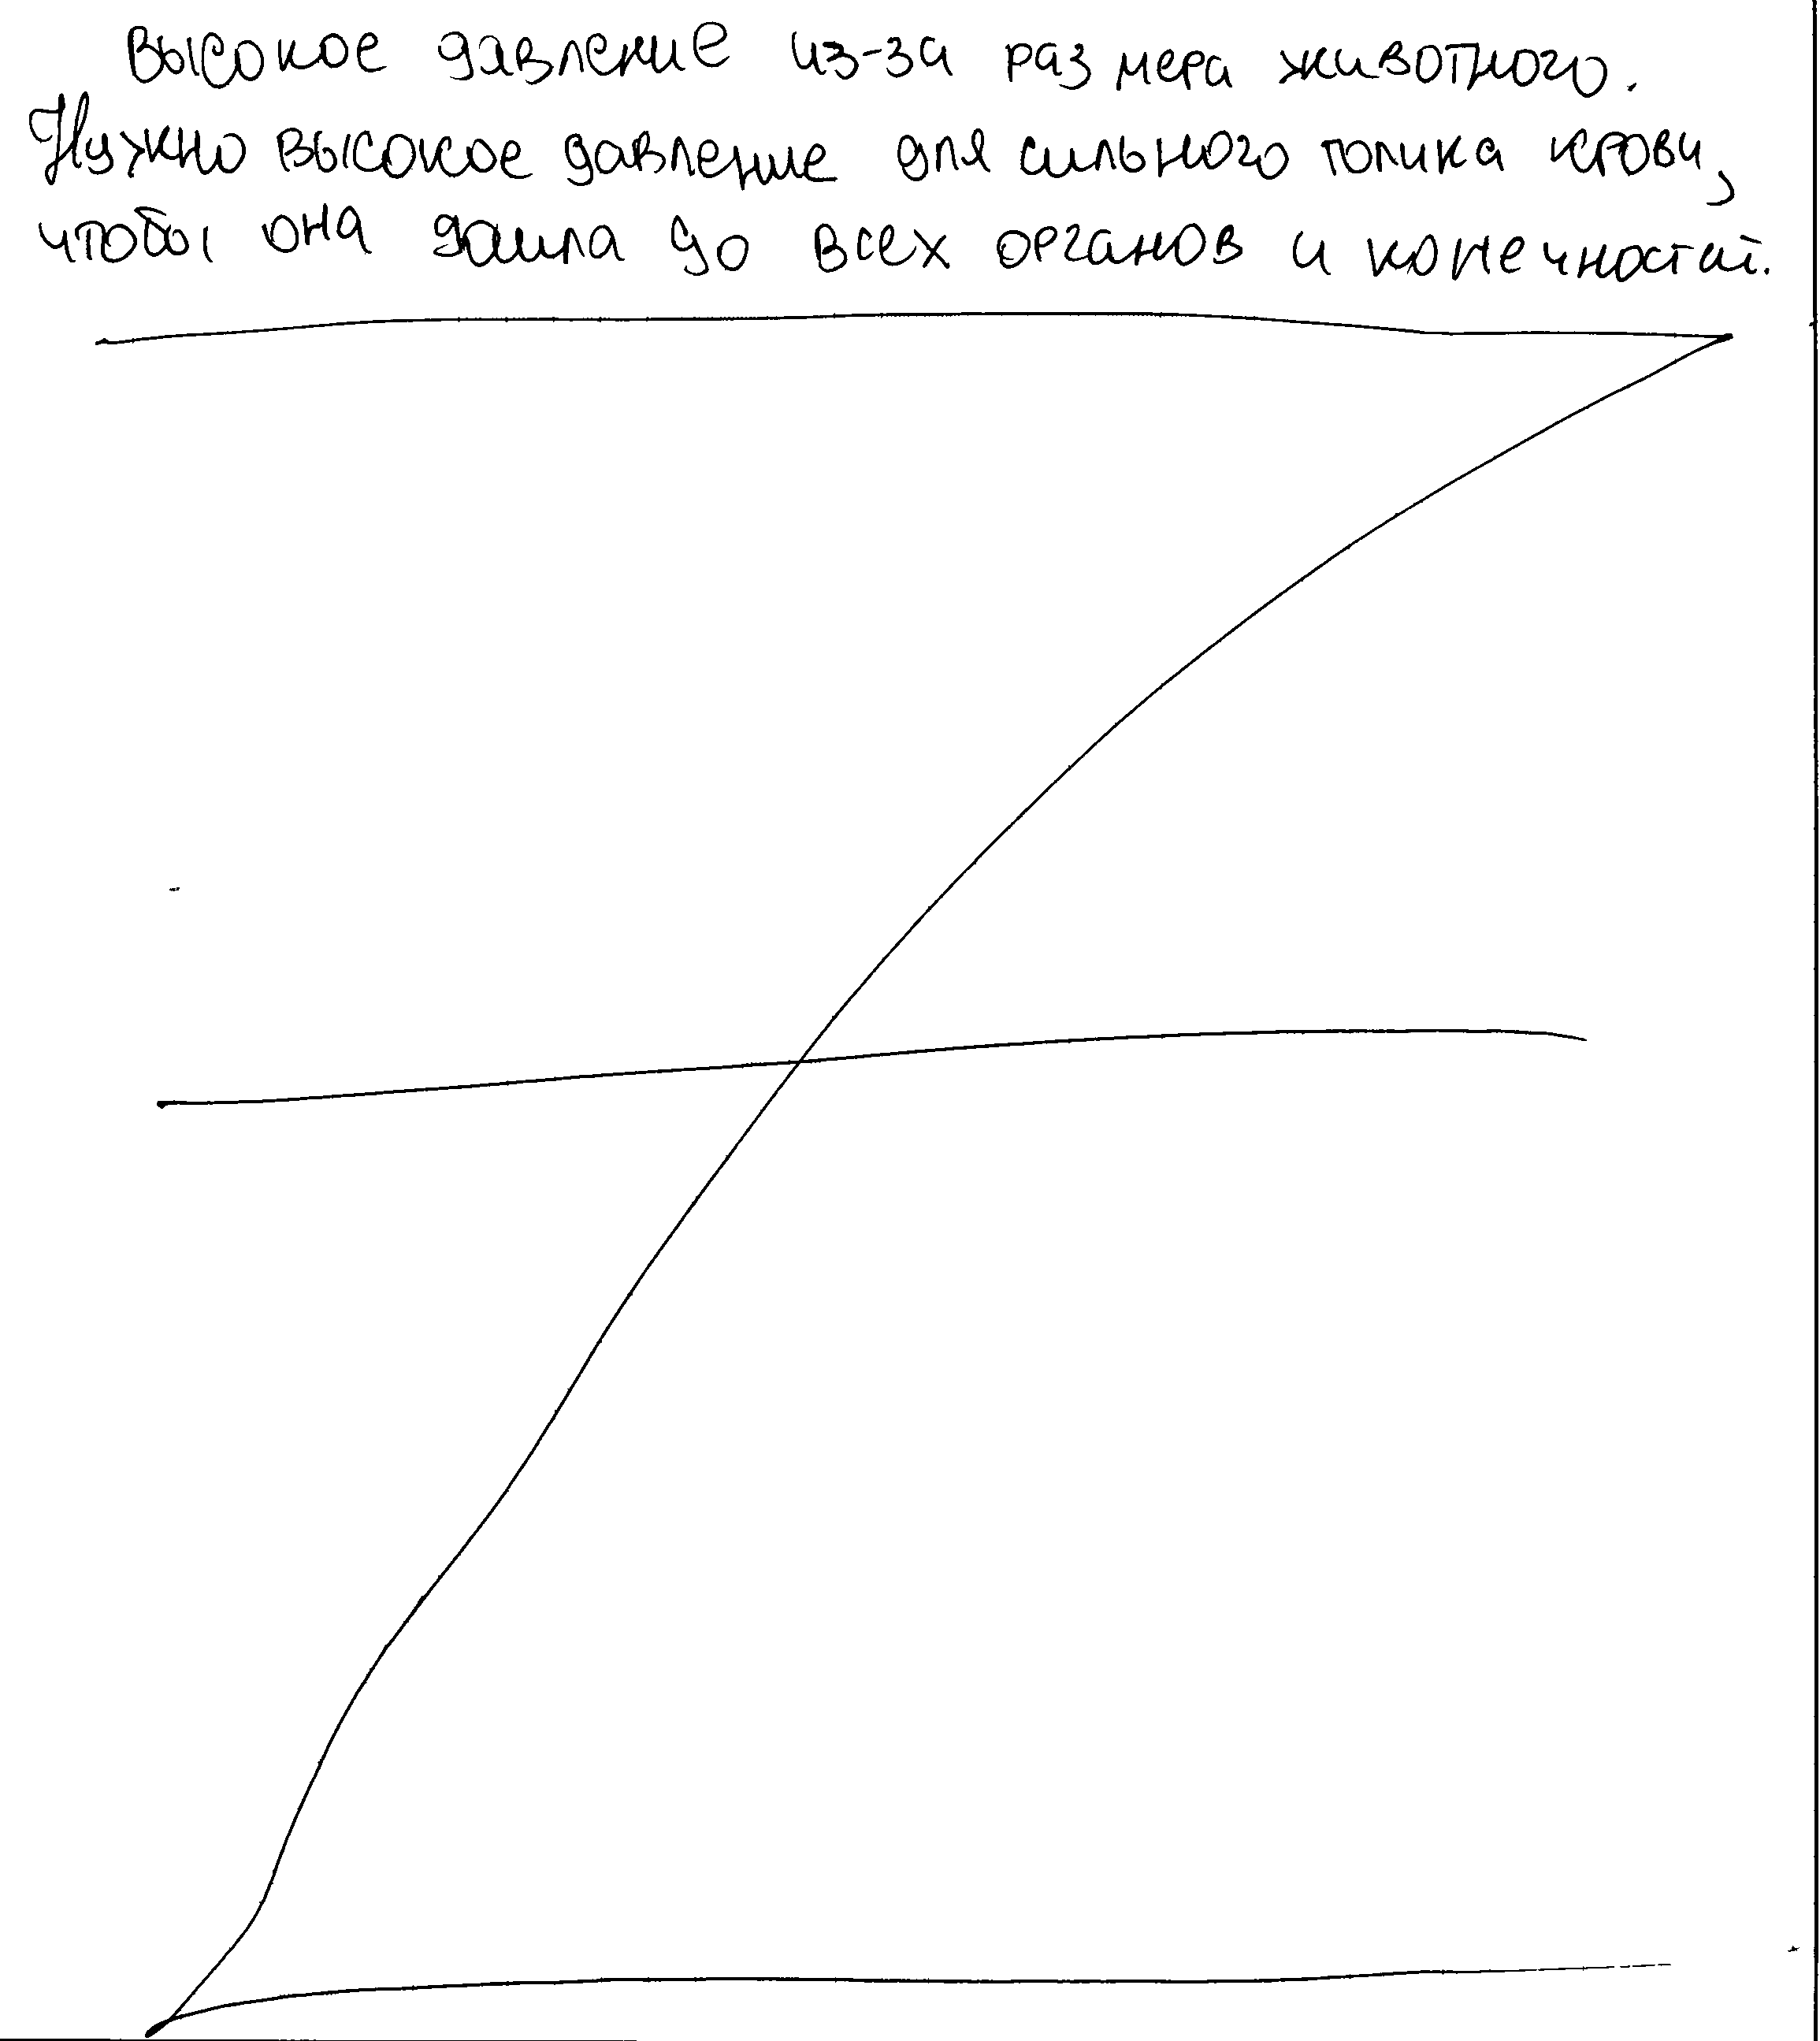 Высокое давление из-за размера животного.
Нужно высокое давление для сильного толика крови,
чтобы она дошла до всех органов и конечностей.